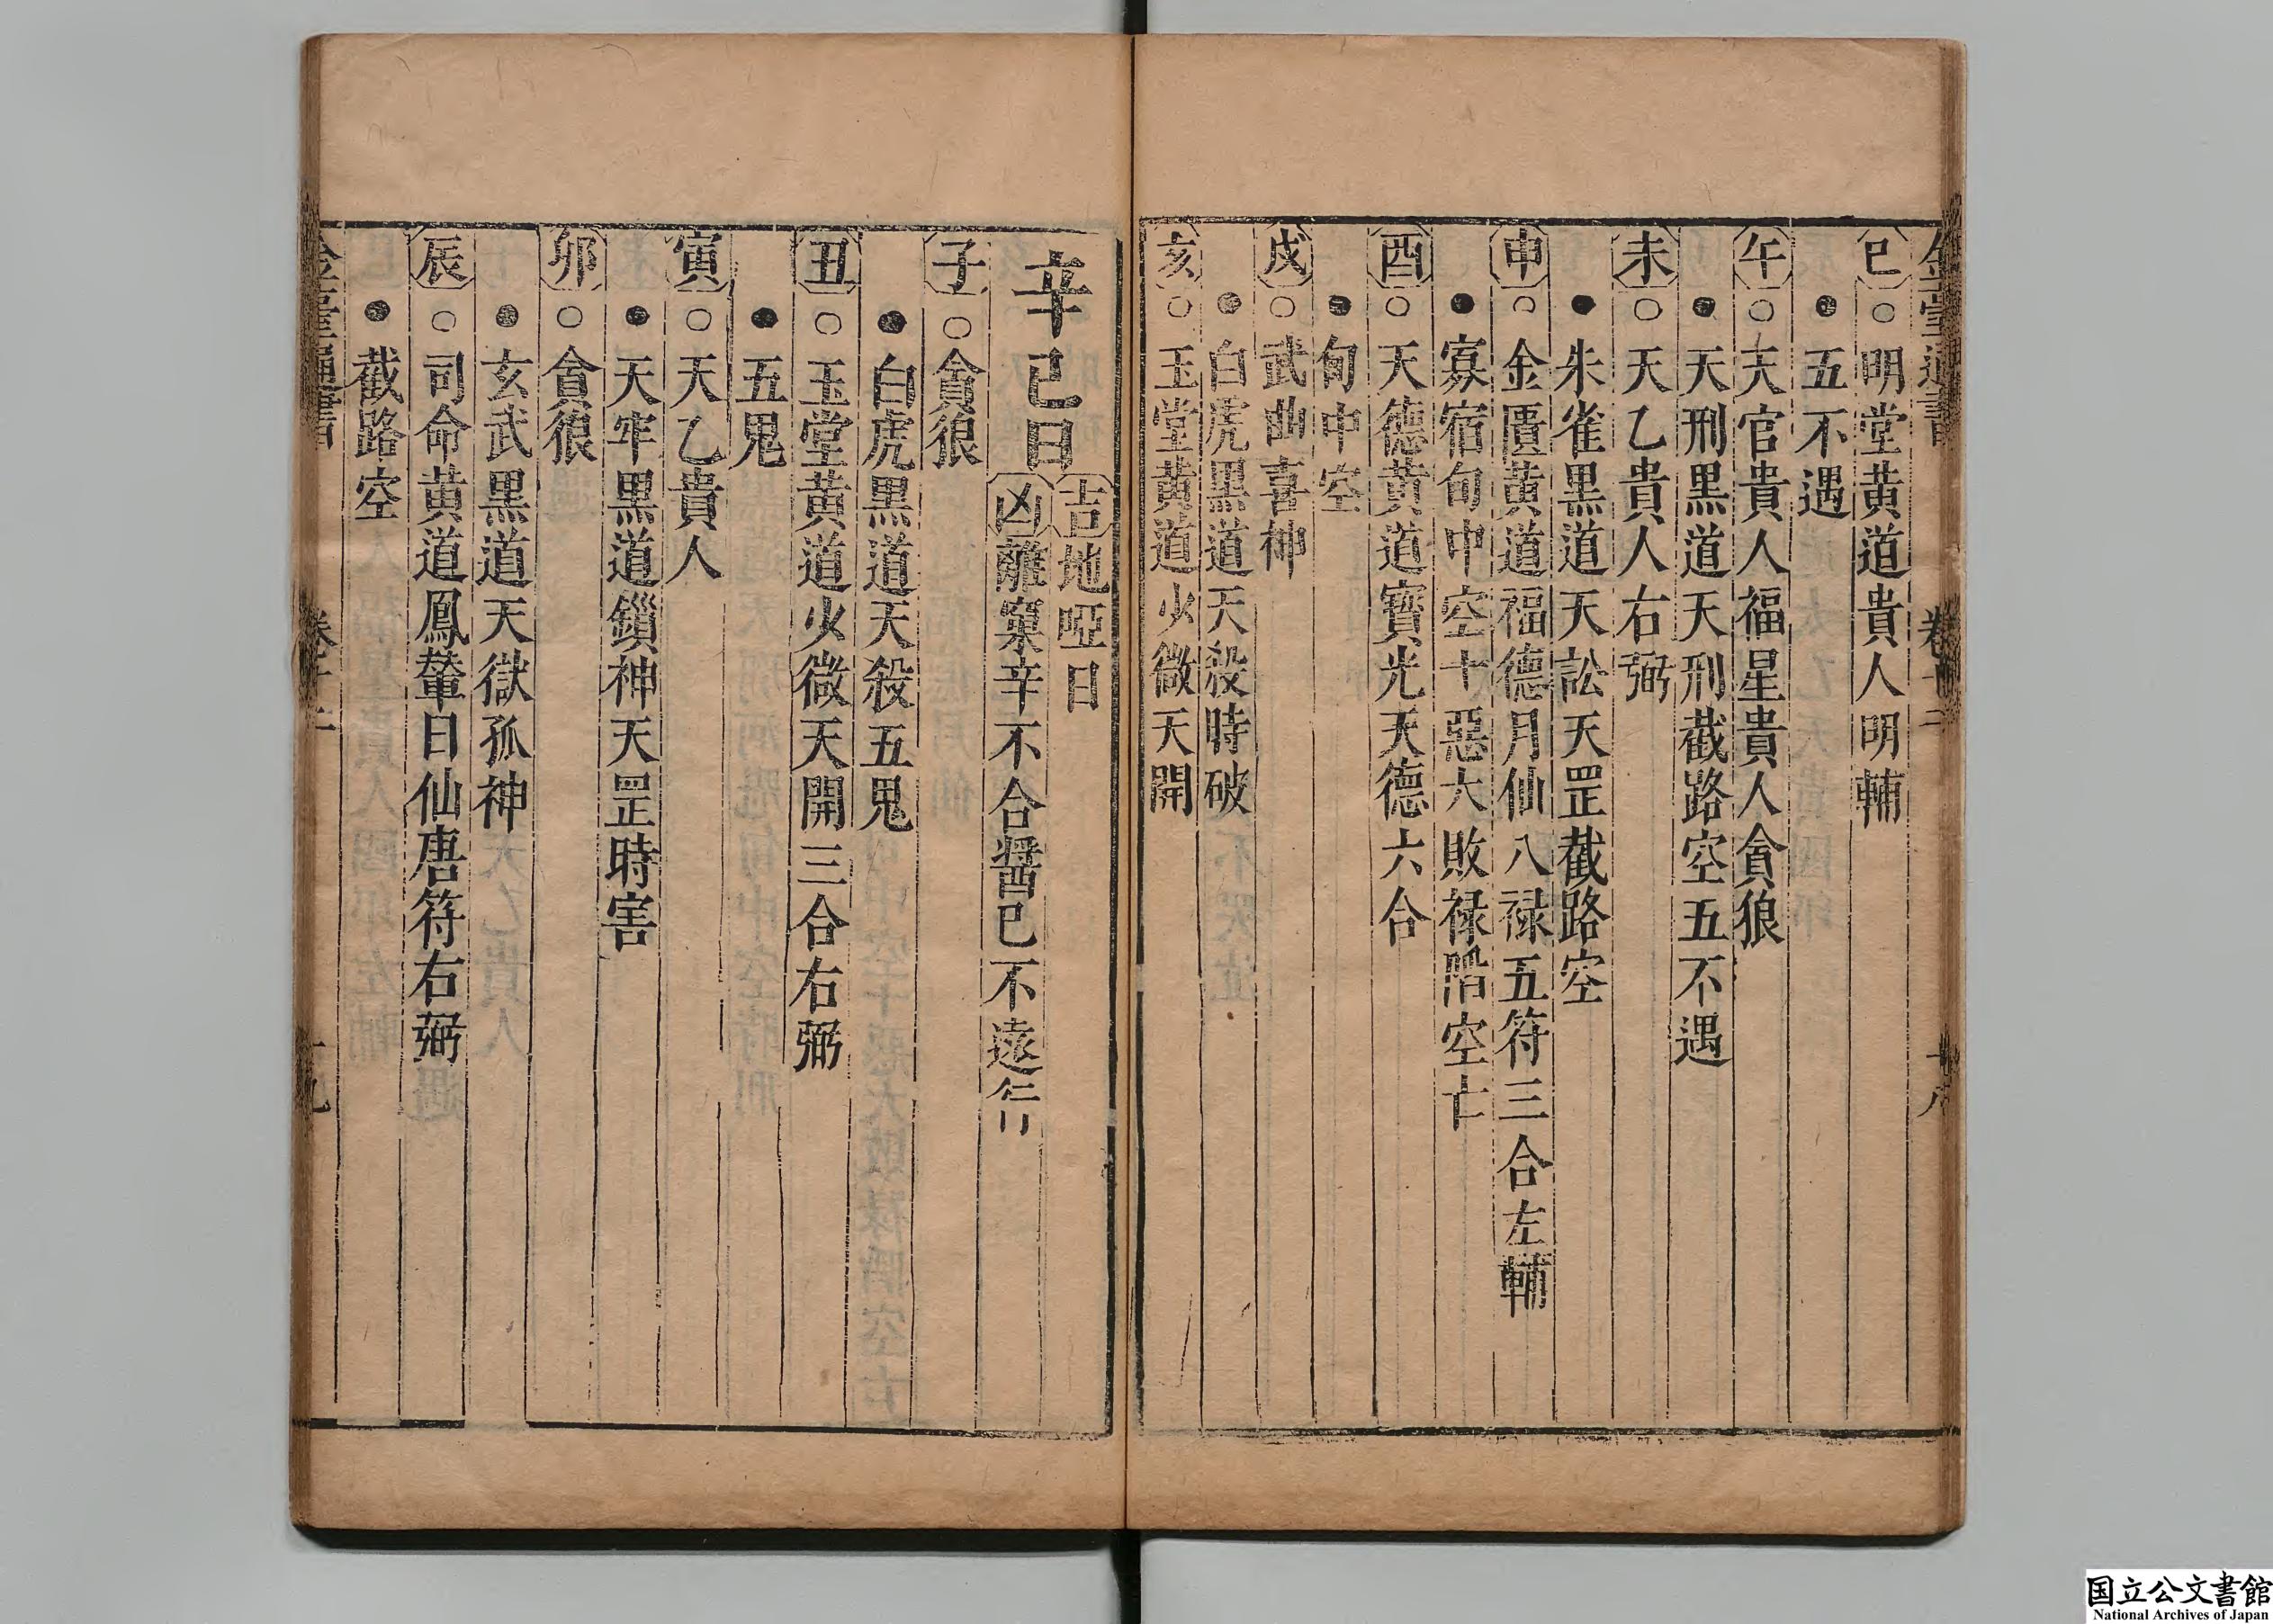 巳○明堂黄道貴人明輔
●五不遇
午○天官貴人福星貴人貪狼
●天刑黒道天刑截路空五不遇
未○天乙貴人右弼
●朱雀黒道天訟天罡截路空
申○金匱黄道福德月仙八禄五符三合左輔
●寡宿旬中空十惡大敗禄陷空亡
酉○天德黄道寳光天德六合
●旬中空
戌○武曲喜神
●白虎黒道天殺時破
亥○玉堂黄道少微天開
辛巳日
吉地啞日
凶離窠辛不合醤巳不遠行
子○貪狼
●白虎黒道天殺五鬼
丑○玉堂黄道少微天開三合右弼
●五鬼
寅○天乙貴人
●天牢黒道鎻神天罡時害
卯○貪狼
●玄武黒道天獄孤神
辰○司命黄道鳳輦日仙唐符右弼
●截路空
国立公文書館
National Archives of Japan